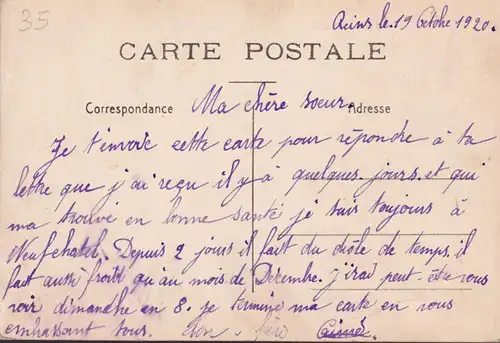 35
Reims le 19 Octobre 1920.
CARTE POSTALE
Correspondance Ma chère soeur. Adresse
Je t'envoie cette carte pour répondre à ta
lettre que j'ai reçu il y a quelques jours. et qui
ma trouvé en bonne santé je suis toujours à
Neufchatel. Depuis 2 jours il fait du drôle de temps. il
fait aussi froid qu'au mois de Décembre. J'irai peut être vous
voir dimanche en 8. je termine ma carte en vous
embrassant tous. ton frère Aimé.